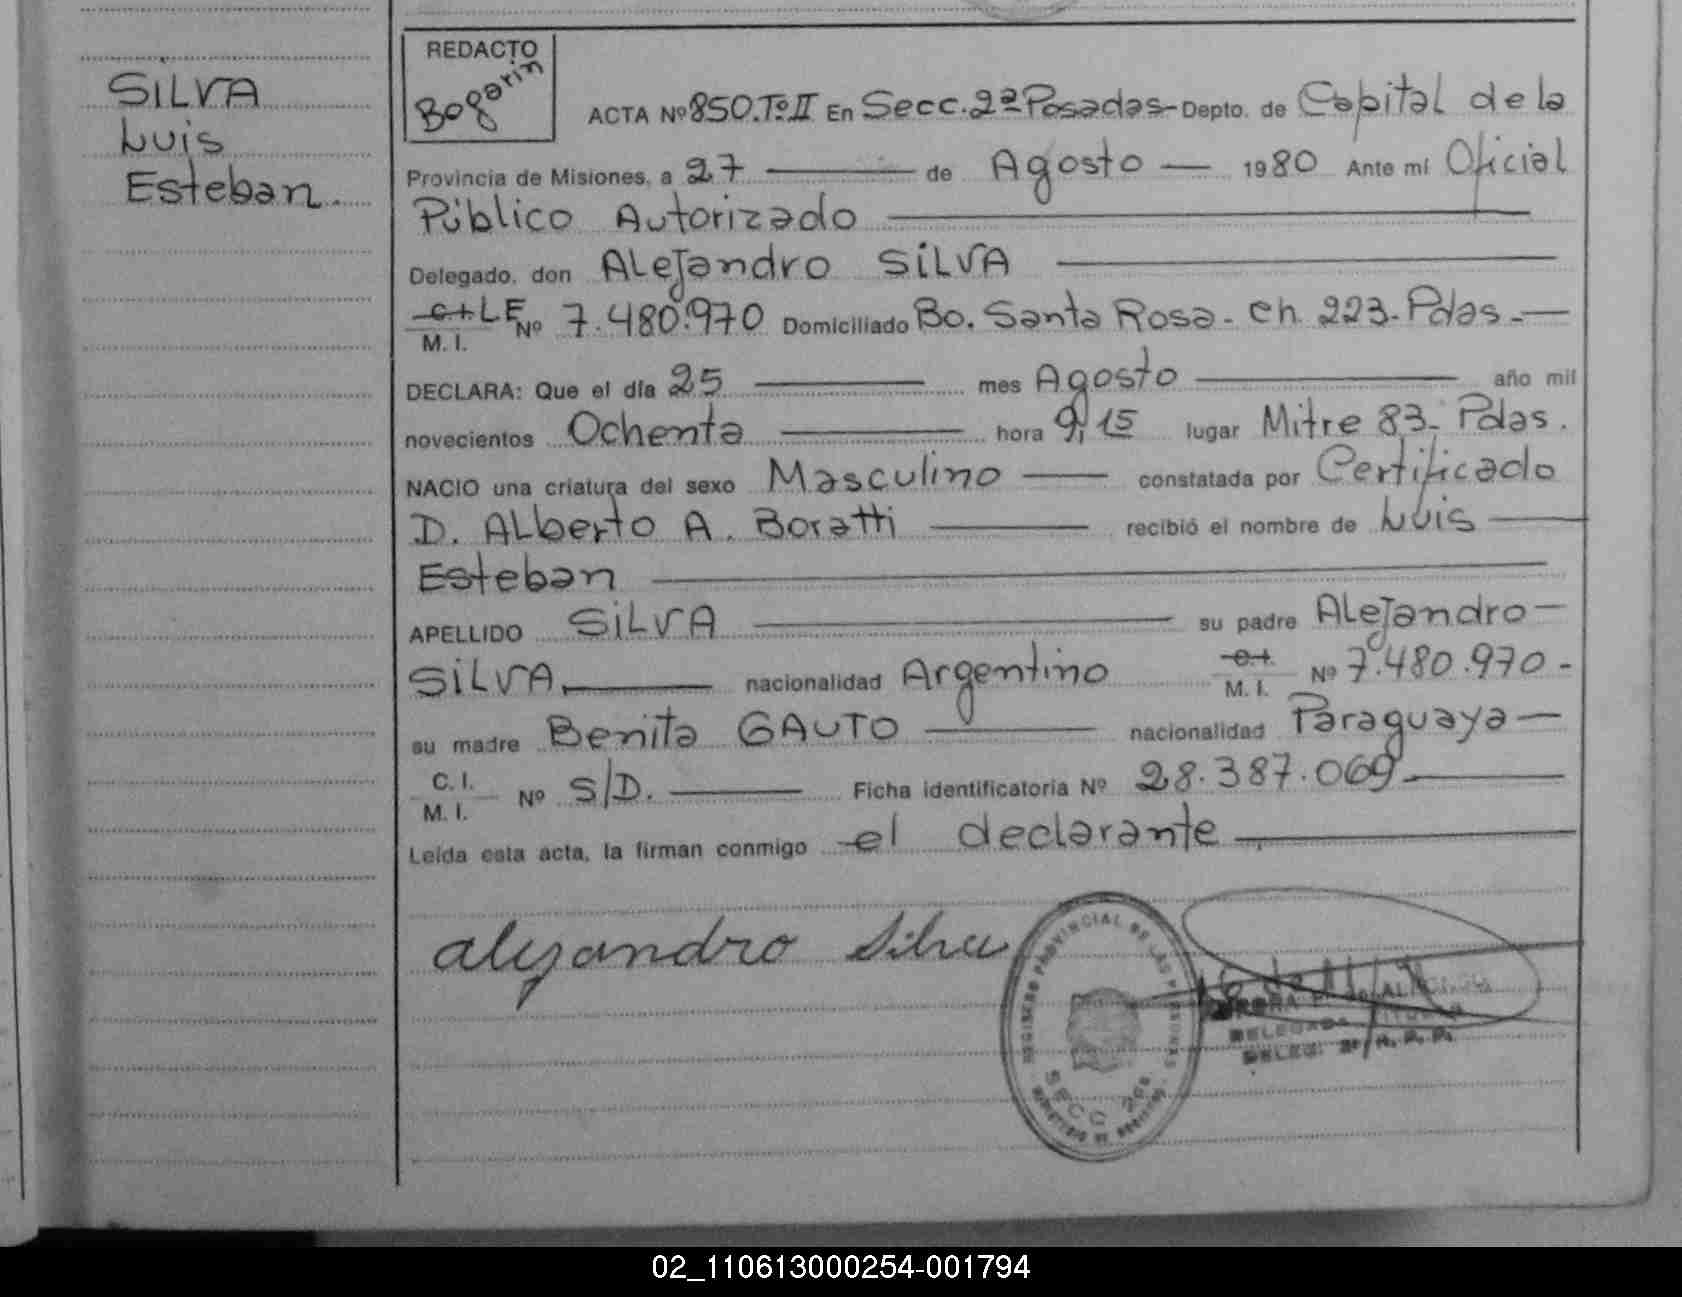 SILVA
Luis
Esteban.
REDACTO
Bogarin
ACTA Nº 850.Tº II En Secc. 2ª Posadas- Depto. de Capital de la
Provincia de Misiones, a 27 de Agosto 1980 Ante mí Oficial
Público Autorizado
Delegado, don ALejandro SILVA
C.I. LE
M. I. Nº 7.480.970 Domiciliado Bo. Santa Rosa - Ch. 223 - Pdas.-
DECLARA: Que el día 25 mes Agosto año mil
novecientos Ochenta hora 9,15 lugar Mitre 83- Pdas.
NACIO una criatura del sexo Masculino constatada por Certificado
D. ALberto A. Boratti recibió el nombre de Luis
Esteban
APELLIDO SILVA su padre ALejandro
SILVA. nacionalidad Argentino C.I.
M. I. Nº 7.480.970 -
su madre Benita GAUTO nacionalidad Paraguaya
C. I.
M. I. Nº S/D. Ficha identificatoria Nº 28.387.069
Leída esta acta, la firman conmigo el declarante
alejandro Silva
REGISTRO PROVINCIAL DE LAS PERSONAS
SECC 2da
02_110613000254-001794